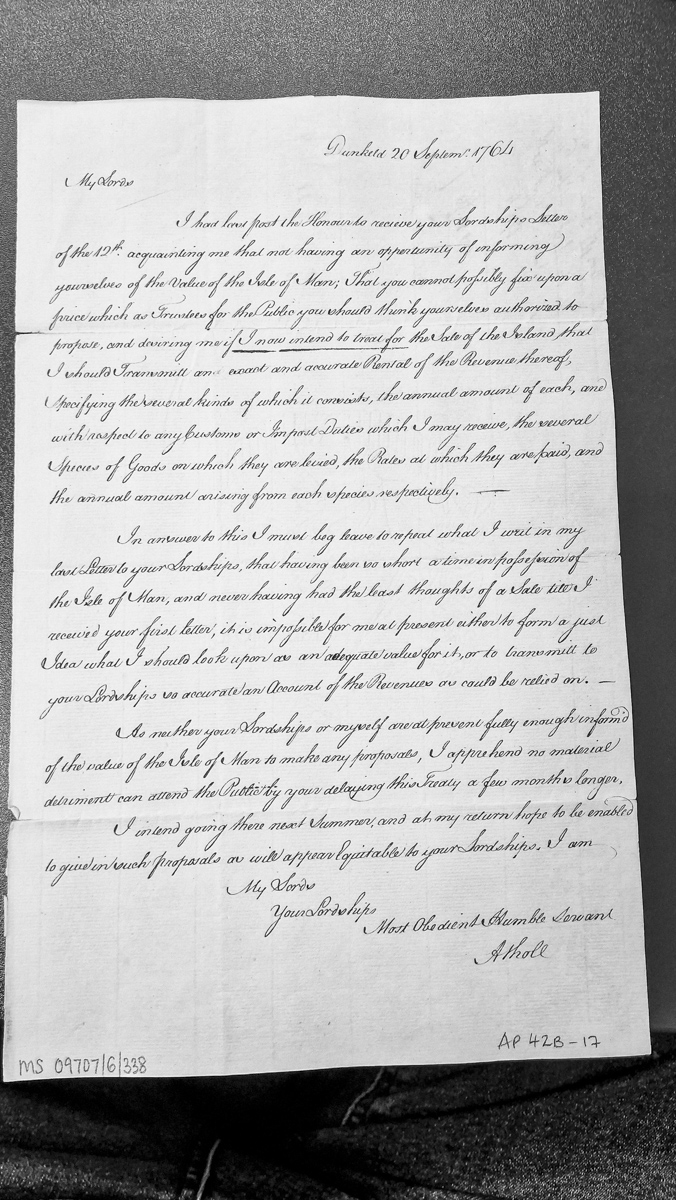 Dunkeld 20 Septemr. 1764
My Lords
I had last post the Honour to recieve your Lordships Letter
of the 12th. acquainting me that not having an opportunity of informing
yourselves of the Value of the Isle of Man; That you cannot possibly fix upon a
price which as Trustees for the Public you should think yourselves authorized to
propose, and desiring me if I now intend to treat for the Sale of the Island, that
I should Transmitt an exact and accurate Rental of the Revenue thereof,
Specifying the several kinds of which it consists, the annual amount of each, and
with respect to any Customs or Impost Duties which I may receive, the several
Species of Goods on which they are levied, the Rates at which they are paid, and
the annual amount arising from each species respectively. —
In answer to this I must beg leave to repeat what I writ in my
last Letter to your Lordships, that having been so short a time in possession of
the Isle of Man, and never having had the least thoughts of a Sale till I
received your first letter, it is impossible for me at present either to form a just
Idea what I should look upon as an adequate value for it, or to transmitt to
your Lordships so accurate an Account of the Revenues as could be relied on. —
As neither your Lordships or myself are at present fully enough inform'd
of the value of the Isle of Man to make any proposals, I apprehend no material
detriment can attend the Public by your delaying this Treaty a few months longer,
I intend going there next Summer, and at my return hope to be enabled
to give in such proposals as will appear Equitable to your Lordships. I am
My Lords
Your Lordships
Most Obedient Humble Servant
Atholl
MS 09707/6/338
AP 42B-17